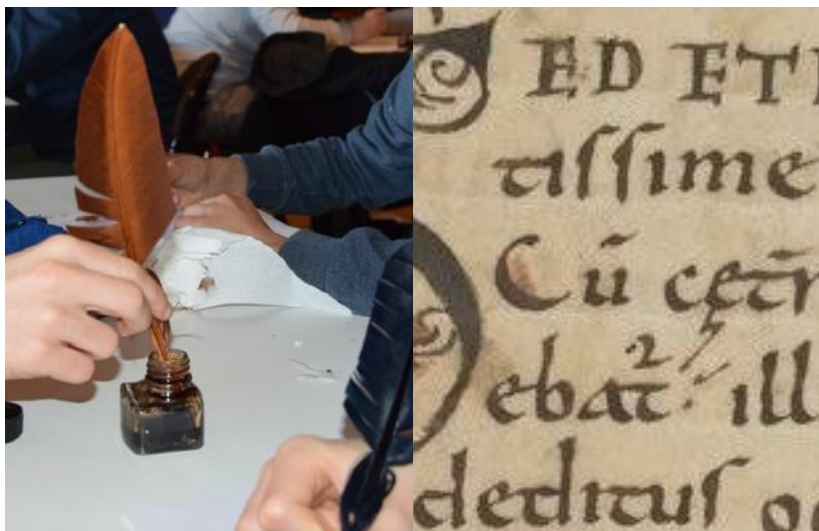 ED ET
tiſſime
Cū cęt̄
ebat̄ ill
dedituſ